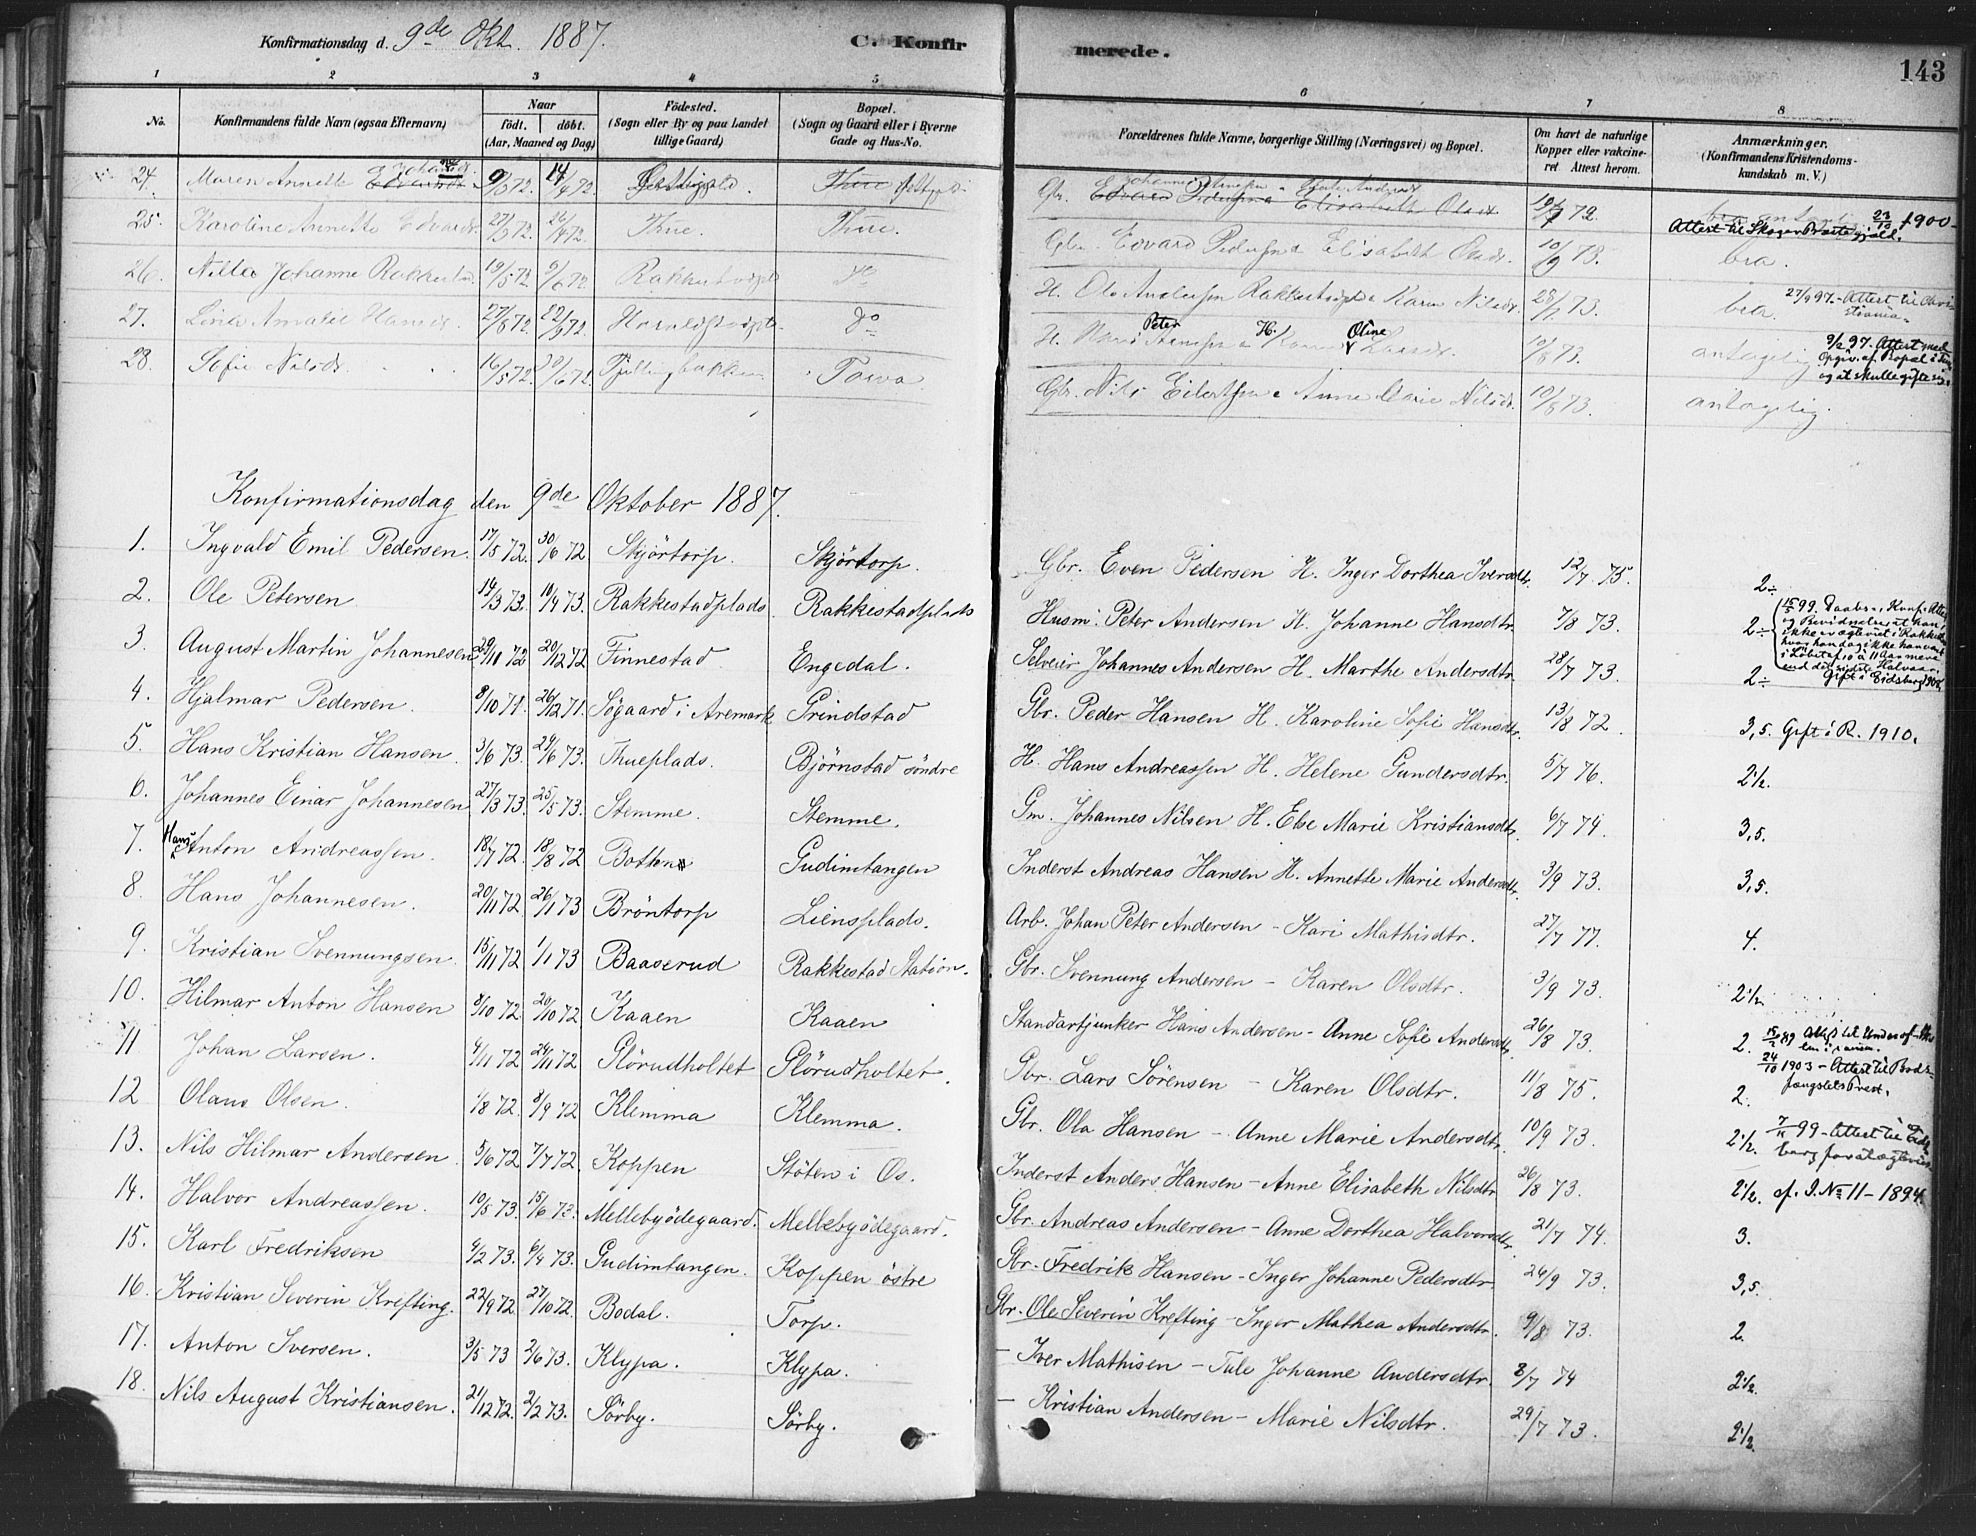 Konfirmationsdag d. 9de Okt. 1887. C. Konfirmerede. 143
1 2 3 4 5 6 7 8
No. Konfirmandens fulde Navn (ogsaa Efternavn) Naar födt. döbt. (Aar, Maaned og Dag) Födested. (Sogn eller By og paa Landet tillige Gaard) Bopæl. (Sogn og Gaard eller i Byerne Gade og Hus-No. Forældrenes fulde Navne, borgerlige Stilling (Næringsvei) og Bopæl. Om havt de naturlige Kopper eller vakcineret Attest herom. Anmærkninger. (Konfirmandens Kristendomskundskab m. V.)
24. Maren Annette Edvardsdr. 9/3 72. 14/4 72. Thue Gbr. Edvard Pedersen Elisabeth Olsdr. 72. 23/10 1900 Attest til Skogen Præstegjæld.
25. Karoline Annette Edvardsdr. 27/3 72. 26/4 72. Thue. Thue. Gbr. Edvard Pedersen & Elisabeth Olsdr. 10/9 73. bra.
26. Nilla Johanne Rakkestad. 19/5 72. 9/6 72. Rakkestadpl. Do H. Ole Andersen Rakkestadpl. & Karen Nilsdr. 28/7 73. bra. 27/9 97. Attest til
27. Amalie Hansdr. 27/8 72. 22/9 72. Do H. Hans Peter H. Karen Oline Larsdr. 10/8 73. antagelig 9/2 97. Attest med Opgiv. af Bopæl i og at skulle gifte sig.
28. Sofie Nilsdr. 16/5 72. 30/6 72. Tjellingbakken Torva. Gbr. Nils Eilertsen & Anne Marie Nilsdr. 10/8 73. antagelig.
Konfirmationsdag den 9de Oktober 1887.
1. Ingvald Emil Pedersen. 17/5 72. 30/6 72. Skjörtorp. Skjörtorp. Gbr. Even Pedersen H. Inger Dorthea Iversdtr. 12/7 75. 2÷
2. Ole Petersen 14/3 73. 14/4 73. Rakkestadplads. Rakkestadplads Husm. Peter Andersen H. Johanne Hansdtr. 7/8 73. 2÷ 15/5 99. Daabs- i Konf. Attest og Bevidnelse at han ikke er ægteviet i Rakkest. hvor han dog ikke har været i Löbet af 10 à 11 Aar mere end det sidste Halvaar.
3. August Martin Johannesen 29/10 72 20/12 72 Finnestad. Engedal. Selveier Johannes Andersen H. Marthe Andersdtr. 28/7 73. 2÷ Gift i Eidsberg 1908
4. Hjalmar Pedersen. 8/10 71. 26/12 71. Søgaard i Aremark Grindstad Gbr. Peder Hansen H. Karoline Sofie Hansdtr. 13/8 72. 3,5. Gift i R. 1910.
5. Hans Kristian Hansen. 3/6 73. 29/6 73. Thueplads. Björnstad söndre H. Hans Andreassen H. Helene Gundersdtr. 5/7 76. 2 1/2.
6. Johannes Einar Johannesen 27/3 73. 25/5 73. Stemme. Stemme. Gm. Johannes Nilsen H. Else Marie Kristiansdtr. 6/7 74. 3,5.
7. Hans Anton Andreassen. 18/7 72. 18/8 72 Botten Gudimtangen Inderst Andreas Hansen H. Annette Marie Andersdtr. 3/9 73. 3,5.
8. Hans Johannesen. 20/11 72. 26/1 73 Bröntorp Liensplads. Arb. Johan Peter Andersen - Kari Mathisdtr. 27/7 77. 4.
9. Kristian Svennungsen. 15/11 72 1/1 73 Baaserud Rakkestad Station. Gbr. Svennung Andersen - Karen Olsdtr. 3/9 73. 2 1/2
10. Hilmar Anton Hansen 8/10 72. 20/10 72 Kaaen Kaaen Standartjunker Hans Andersen - Anne Sofie Andersdtr. 26/8 73. 2. 89 Attest til Underof-
11 Johan Larsen. 4/11 72 24/11 72 Glörudholtet Glörudholtet. Gbr. Lars Sørensen - Karen Olsdtr. 11/8 75. 2. 24/10 1903 - Attest til Bodsfængslets Prest.
12 Olaus Olsen. 1/8 72. 8/9 72 Klemma Klemma. Gbr. Ola Hansen - Anne Marie Andersdtr. 10/9 73. 2 1/2. 7/11 99 - Attest til Eidsberg for at ægtevies
13. Nils Hilmar Andersen 5/6 72 7/7 72. Koppen Stöten i Os. Inderst Anders Hansen - Anne Elisabeth Nilsdtr 26/8 73. 2 1/2. cf. I. No 11 - 1894.
14. Halvor Andreassen. 10/5 73. 15/6 73. Mellebyödegaard. Mellebyödegaard. Gbr. Andreas Andersen - Anne Dorthea Halvorsdtr. 21/7 74. 3.
15. Karl Fredriksen 9/2 73. 6/4 73. Gudimtangen. Koppen östre Gbr. Fredrik Hansen - Inger Johanne Pedersdtr. 24/9 73. 3,5.
16. Kristian Severin Krefting. 22/9 72. 27/10 72. Bodal. Torp. Gbr. Ole Severin Krefting - Inger Mathea Andersdtr. 9/8 73. 2.
17. Anton Iversen. 3/5 73 2/6 73. Klypa. Klypa. - Iver Mathisen - Tale Johanne Andersdtr. 8/7 74 2 1/2.
18. Nils August Kristiansen. 21/12 72. 2/2 73. Sörby. Sörby. - Kristian Andersen - Marie Nilsdtr. 29/7 73. 2 1/2.